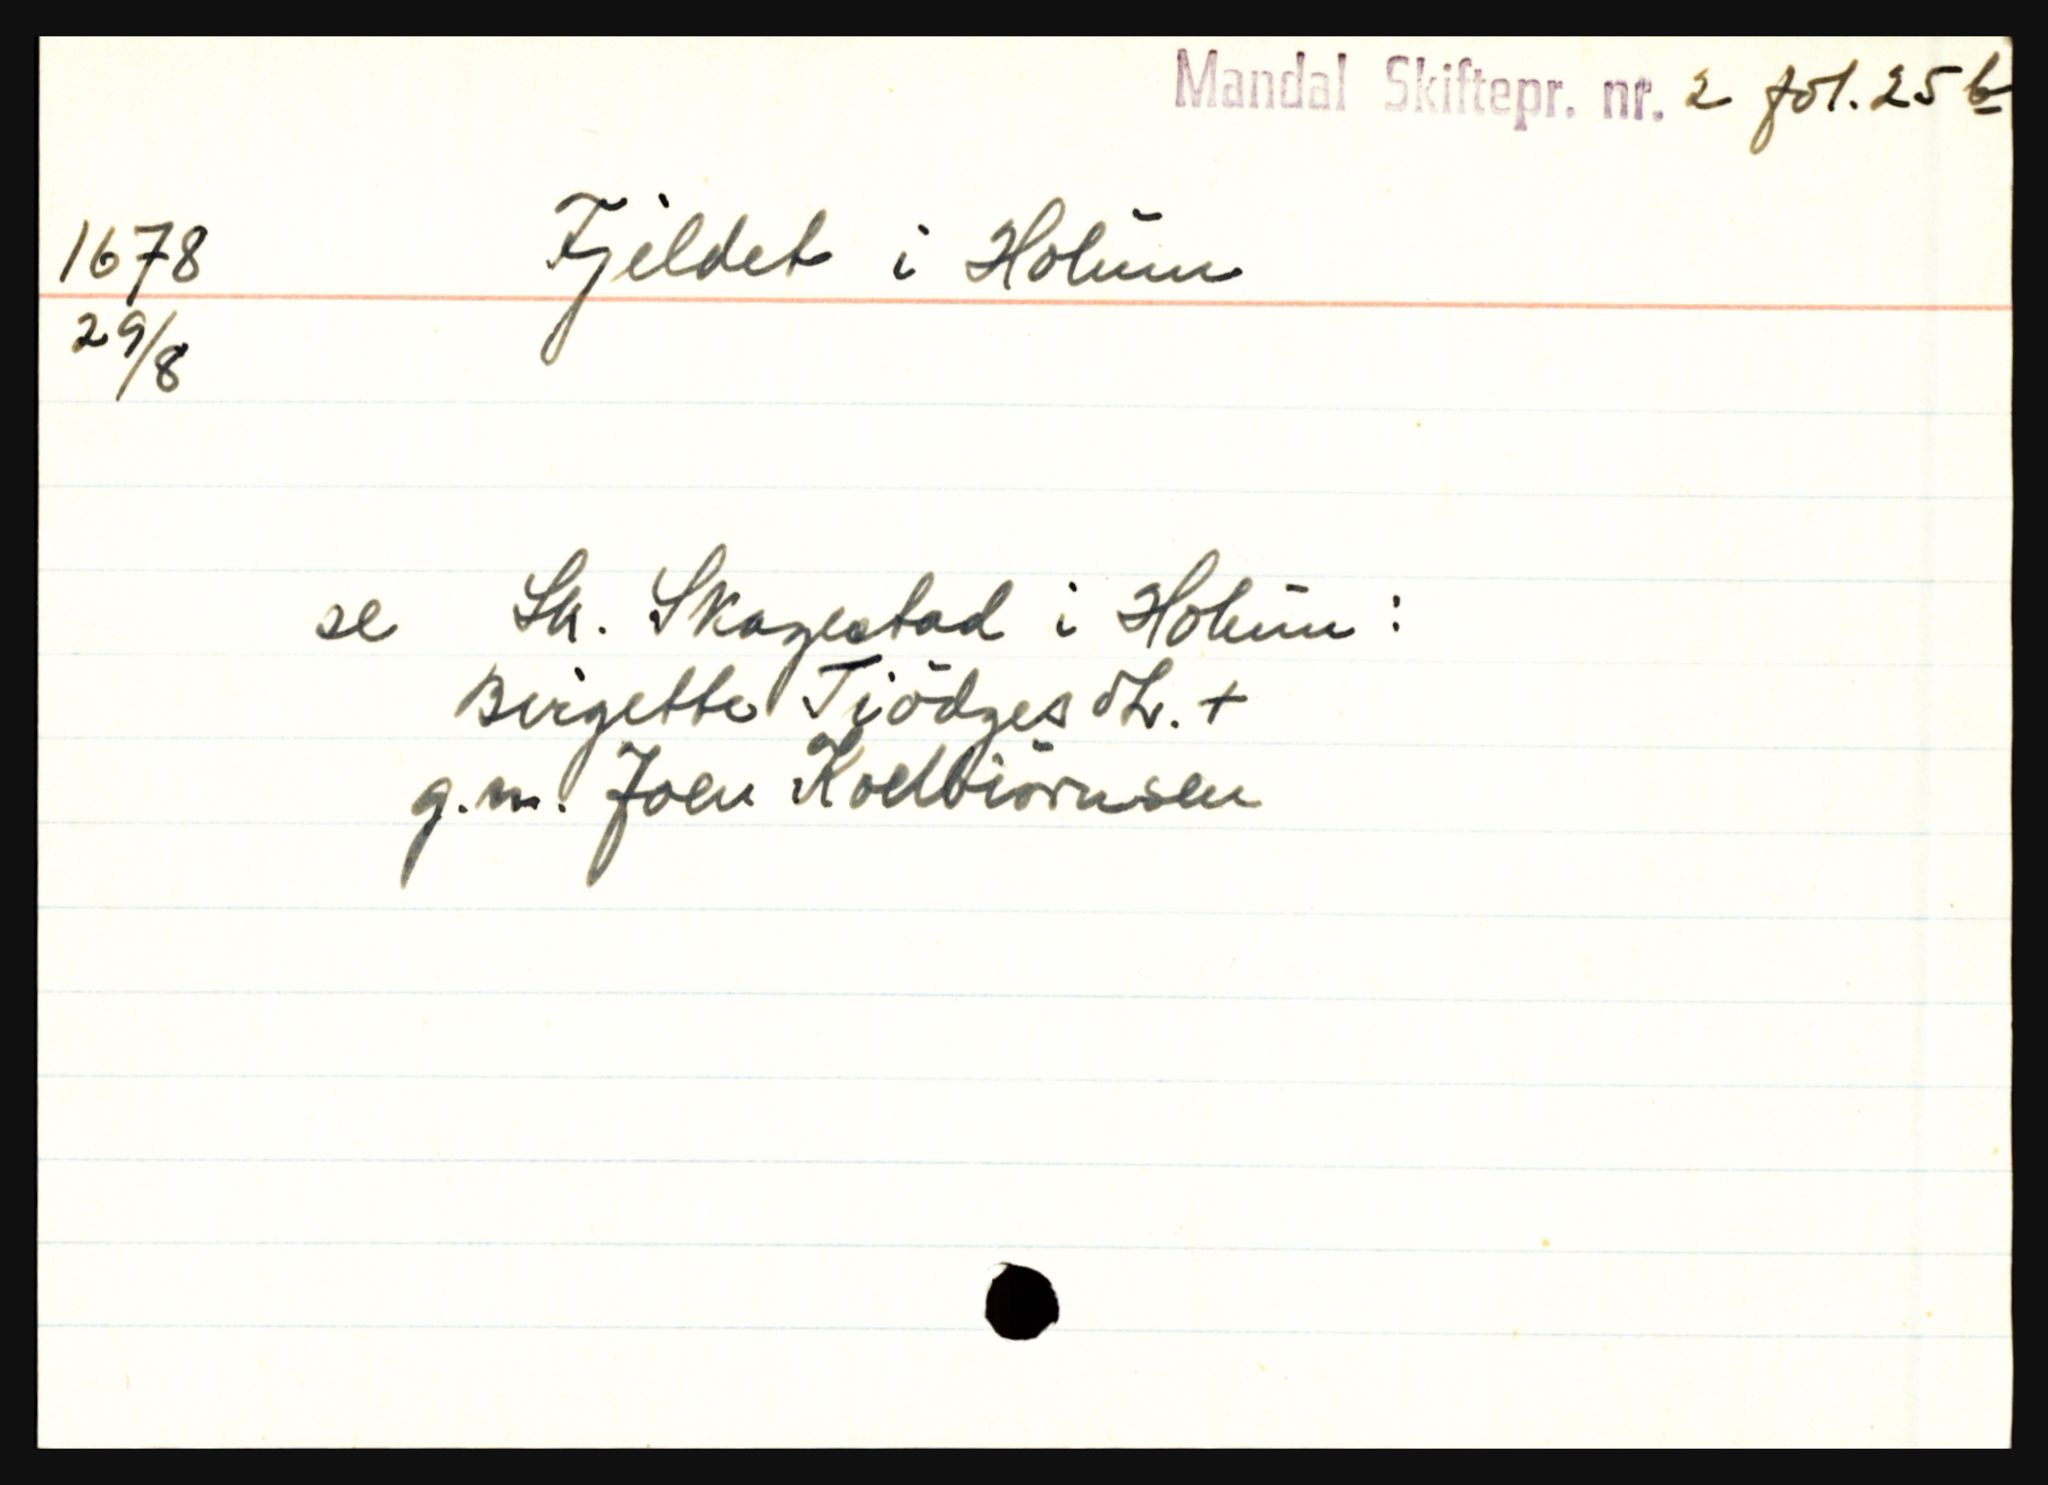 Mandal Skiftepr. nr. 2 fol. 25 b
1678 Fjeldet i Holum
29/8
se Sk. Skagestad i Holum:
Birgette Tiödgesdtr. +
g.m. Joen Koelbiörnsen